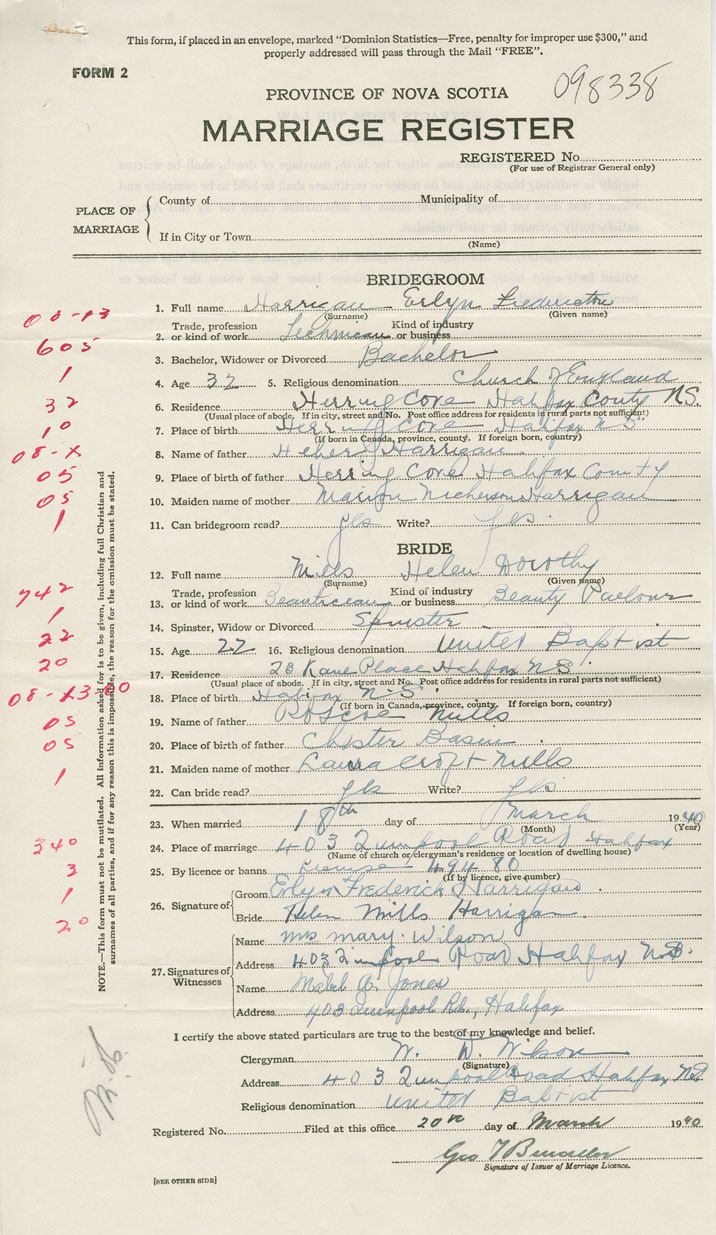 This form, if placed in an envelope, marked "Dominion Statistics—Free, penalty for improper use $300," and
properly addressed will pass through the Mail "FREE".
FORM 2
098338
PROVINCE OF NOVA SCOTIA
MARRIAGE REGISTER
REGISTERED No.
(For use of Registrar General only)
PLACE OF MARRIAGE
County of Municipality of
If in City or Town
(Name)
BRIDEGROOM
1. Full name Harrigan Erlyn Frederick
(Surname) (Given name)
08-13
2. Trade, profession or kind of work Kind of industry or business
605
3. Bachelor, Widower or Divorced Bachelor
1
4. Age 32 5. Religious denomination Church of England
32
6. Residence Herring Cove Halifax County N.S.
(Usual place of abode. If in city, street and No. Post office address for residents in rural parts not sufficient)
10
7. Place of birth Herring Cove Halifax N.S.
(If born in Canada, province, county. If foreign born, country)
08-X
8. Name of father Heber Harrigan
05
9. Place of birth of father Herring Cove Halifax County
05
10. Maiden name of mother Marion Nickerson Harrigan
1
11. Can bridegroom read? yes Write? yes.
BRIDE
12. Full name Mills Helen Dorothy
(Surname) (Given name)
742
13. Trade, profession or kind of work Beautician Kind of industry or business Beauty Parlour
1
14. Spinster, Widow or Divorced Spinster
22
15. Age 22 16. Religious denomination United Baptist
20
17. Residence 28 Kane Place Halifax N.S.
(Usual place of abode. If in city, street and No. Post office address for residents in rural parts not sufficient)
08-13-00
18. Place of birth Halifax N.S.
(If born in Canada, province, county. If foreign born, country)
05
19. Name of father Roscoe Mills
05
20. Place of birth of father Chester Basin
21. Maiden name of mother Laura Croft Mills
1
22. Can bride read? yes Write? yes
23. When married 18th day of March 1940
(Month) (Year)
340
24. Place of marriage 403 Quinpool Road Halifax
(Name of church or clergyman's residence or location of dwelling house)
3
25. By licence or banns license 49480
(If by licence, give number)
1
26. Signature of
Groom Erlyn Frederick Harrigan
20
Bride Helen Mills Harrigan
27. Signatures of Witnesses
Name Mrs Mary Wilson
Address 403 Quinpool Road Halifax N.S.
Name Mabel A. Jones
Address 403 Quinpool Rd., Halifax
NOTE.—This form must not be mutilated. All information asked for is to be given, including full Christian and
surnames of all parties, and if for any reason this is impossible, the reason for the omission must be stated.
I certify the above stated particulars are true to the best of my knowledge and belief.
Clergyman W. D. Wilson
(Signature)
Address 403 Quinpool Road Halifax N.S.
Religious denomination United Baptist
Registered No. Filed at this office 20th day of March 1940
Geo T
Signature of Issuer of Marriage Licence.
[SEE OTHER SIDE]